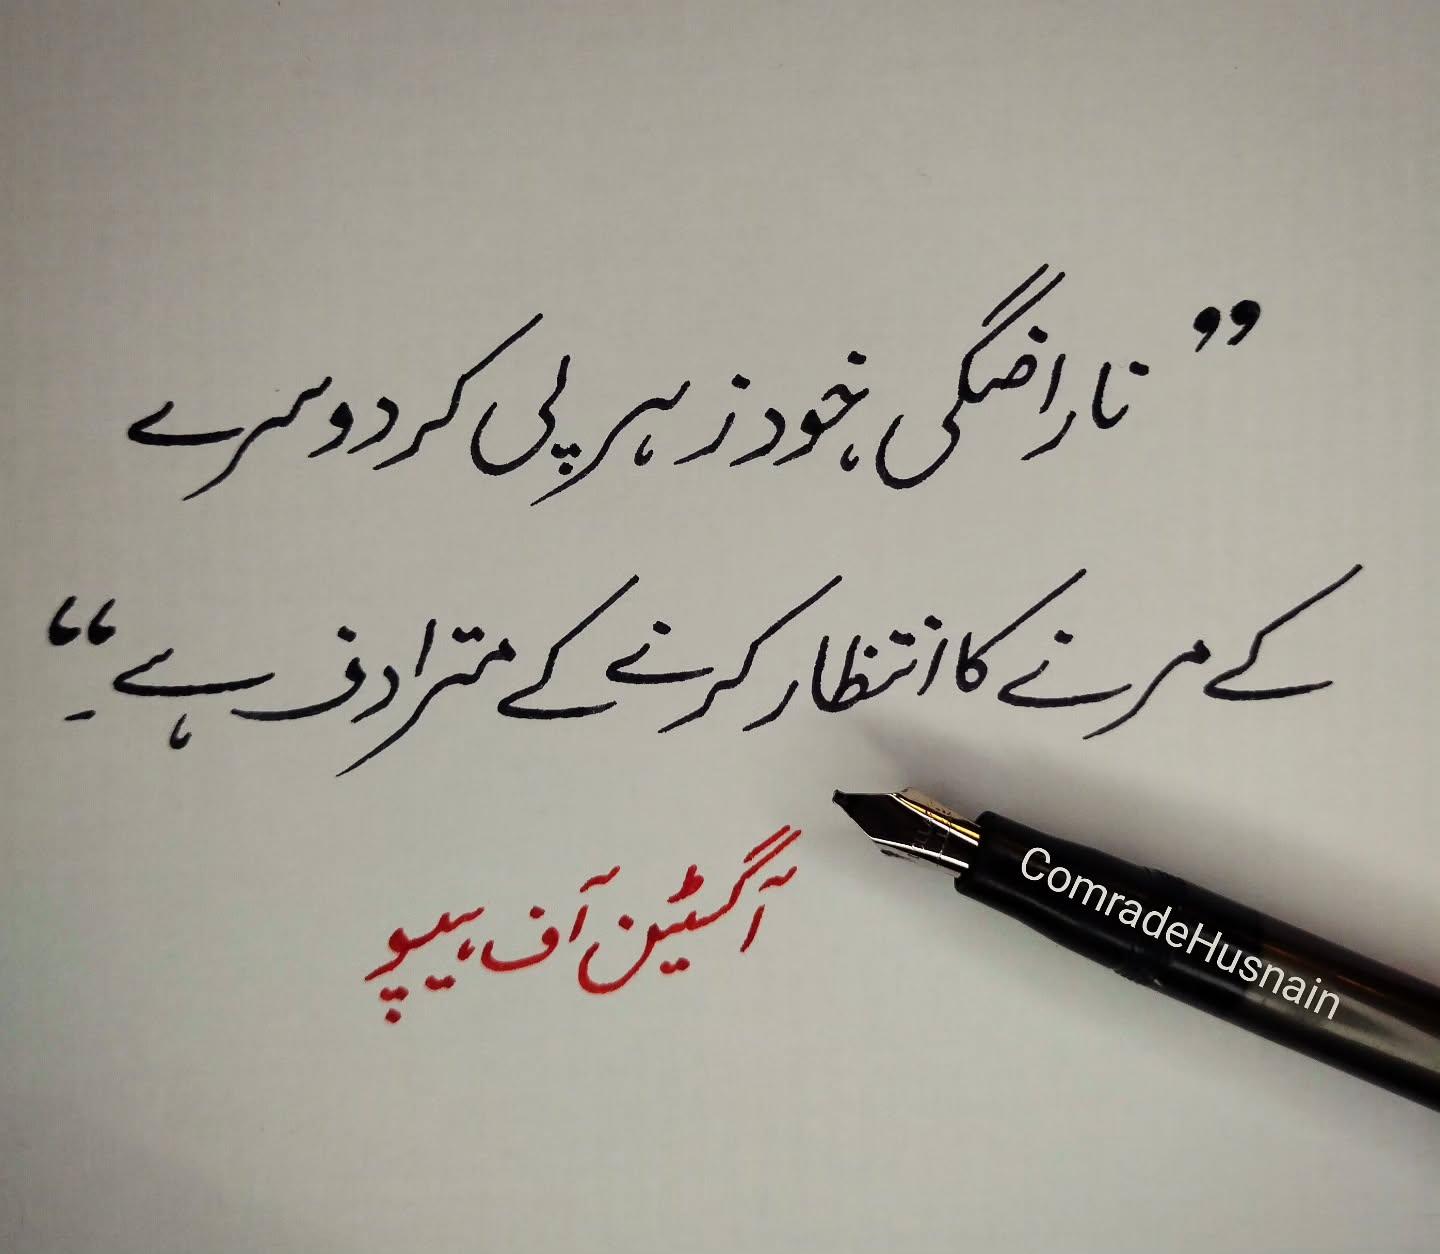 ”ناراضگی خود زہر پی کر دوسرے
کے مرنے کا انتظار کرنے کے مترادف ہے۔“
آگسٹین آف ہیپو
ComradeHusnain